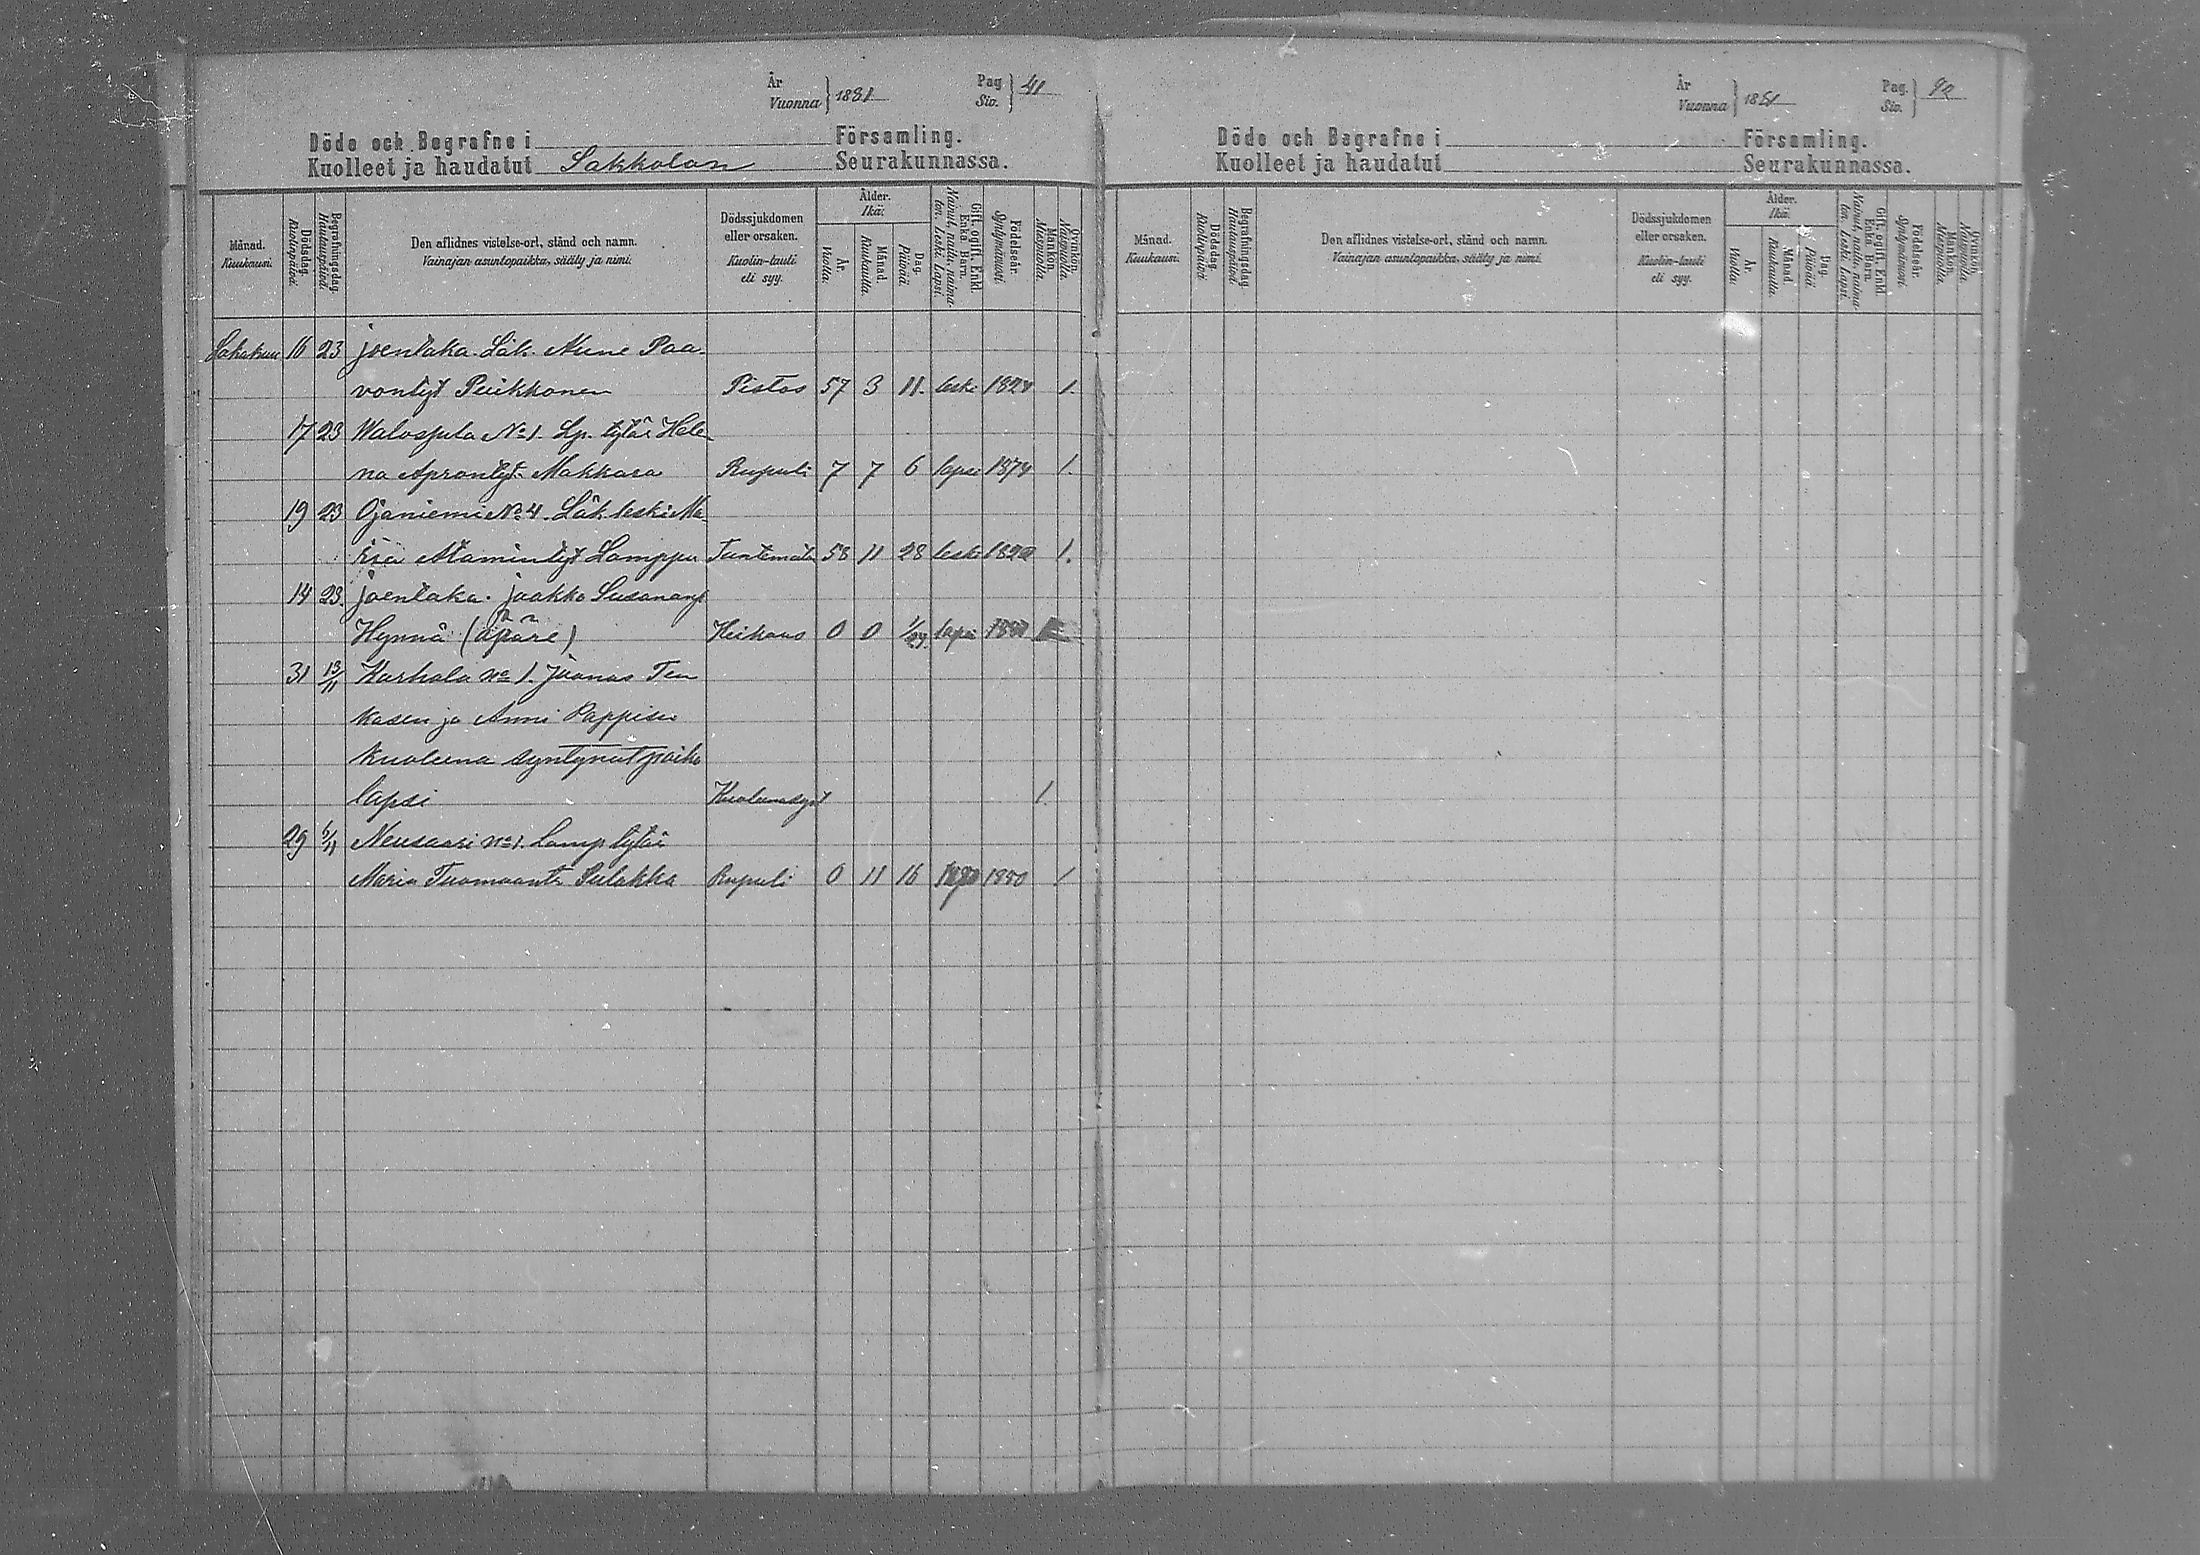 År
Vuonna } 1881
Pag
Siv. } 41
Döde och Begrafne i Församling.
Kuolleet ja haudatut Sakkolan Seurakunnassa.
Månad. Kuukausi.
Dödsdag. Kuolinpäivä.
Begrafningsdag. Hautauspäivä.
Den aflidnes vistelse-ort, stånd och namn.
Vainajan asuntopaikka, sääty ja nimi.
Dödssjukdomen
eller orsaken.
Kuolin-tauti
eli syy.
Ålder.
Ikä.
År. Vuotta.
Månad. Kuukautta.
Dag. Päivää.
Gift, ogift. Enkl. Enka. Barn. Nainut, naitu, naimaton. Leski. Lapsi.
Födelseår. Syntymävuosi.
Mankön. Miespuolia.
Qvinkön. Naispuolia.
Lokakuu 16 23 Joentaka. Läk. Anne Paa-
vontyt Puikkonen Pistos 57 3 11. leski 1824 1.
17 23 Walosjula No 1. Lp. tytär Hele-
na Aprontyt. Makkara Rupuli 7 7 6 lapsi 1874 1.
19 23 Ojaniemi No 4. Läk. leski Ma-
ria Atamintyt Lamppu Tuntemat. 58 11 28 leski 1822 1.
14 23. Joentaka. Jaakko Susananp
Hynnä (äpäre) Heikous 0 0 lapsi 1881
31 13/11 Karhola No 1. Juonas Ten
kasen ja Anni Pappisen
kuoleena syntynut poika
lapsi Kuoleenasynt 1.
29 6/11 Neusaari No 1. Lamp. tytär
Maria Tuomaant. Pulakka Rupuli 0 11 16 1880 1
År
Vuonna } 1881
Pag.
Siv. } 42
Döde och Begrafne i Församling.
Kuolleet ja haudatut Seurakunnassa.
Månad. Kuukausi.
Dödsdag. Kuolinpäivä.
Begrafningsdag. Hautauspäivä.
Den aflidnes vistelse-ort, stånd och namn.
Vainajan asuntopaikka, sääty ja nimi.
Dödssjukdomen
eller orsaken.
Kuolin-tauti
eli syy.
Ålder.
Ikä.
År. Vuotta.
Månad. Kuukautta.
Dag. Päivää.
Gift, ogift. Enkl. Enka. Barn. Nainut, naitu, naimaton. Leski. Lapsi.
Födelseår. Syntymävuosi.
Mankön. Miespuolia.
Qvinkön. Naispuolia.